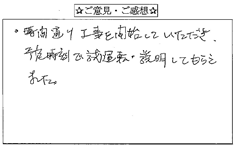 ☆ご意見・ご感想☆
・時間通り工事を開始していただき、
予定時刻で試運転・説明してもらえ
ました。